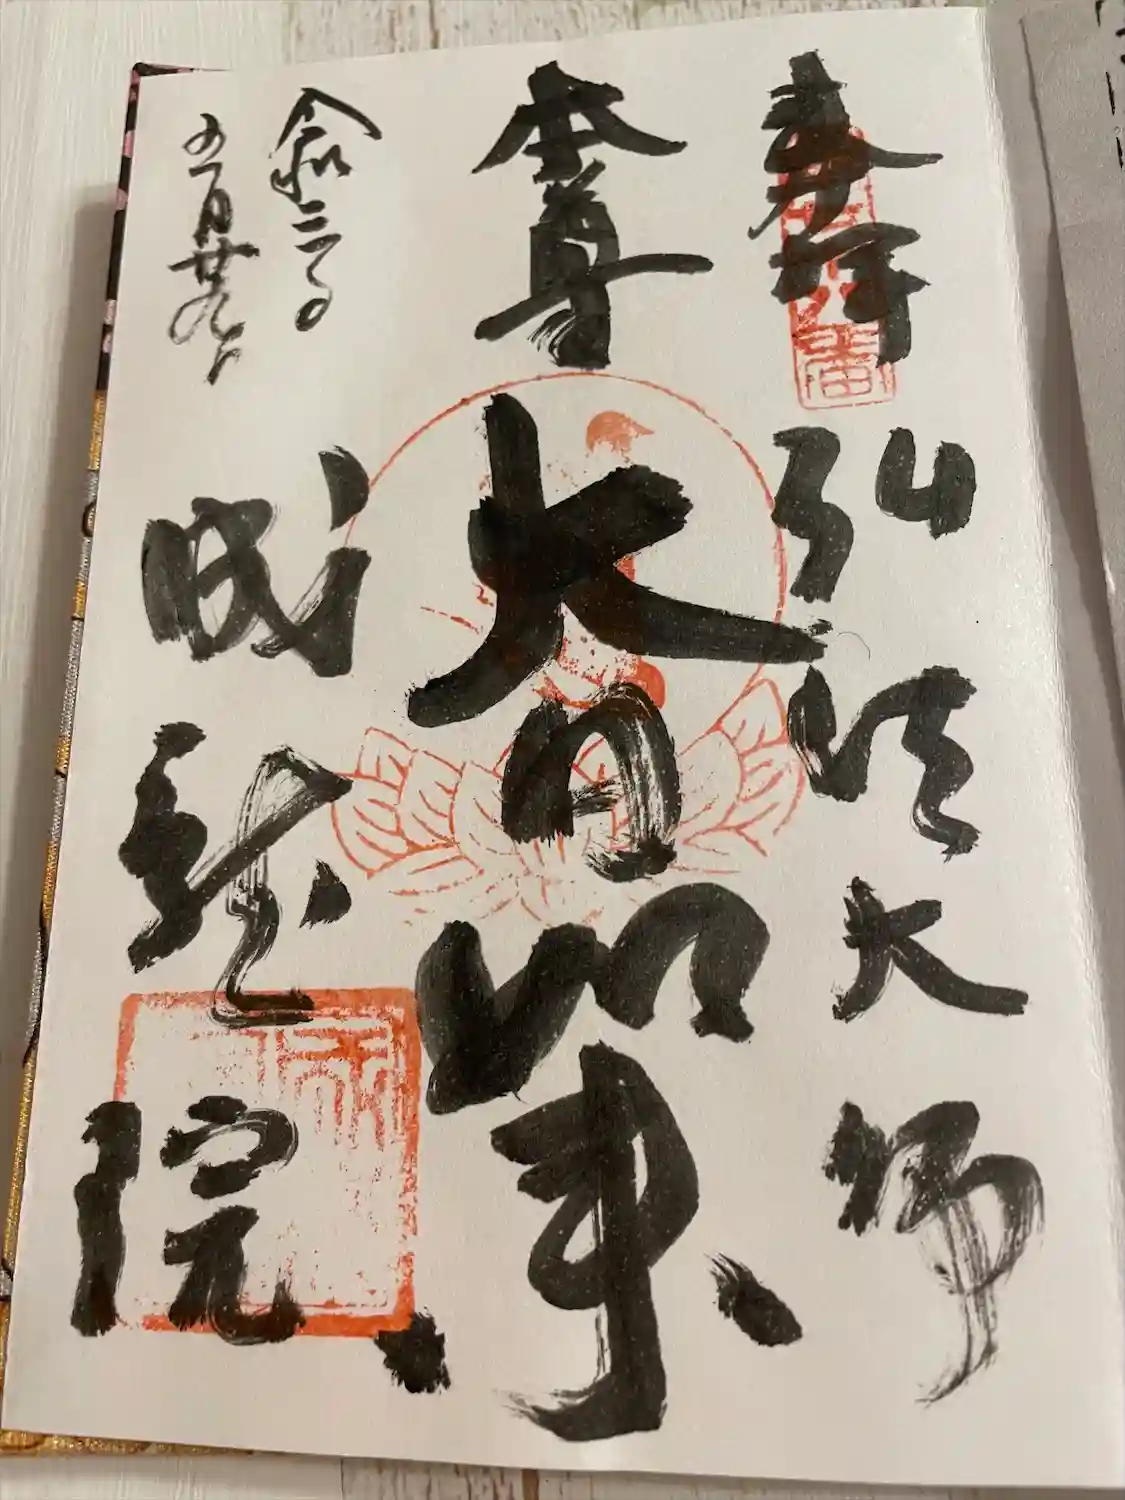 奉拝
弘法大師
本尊
大日如来
令和三年
五月廿九日
成就院